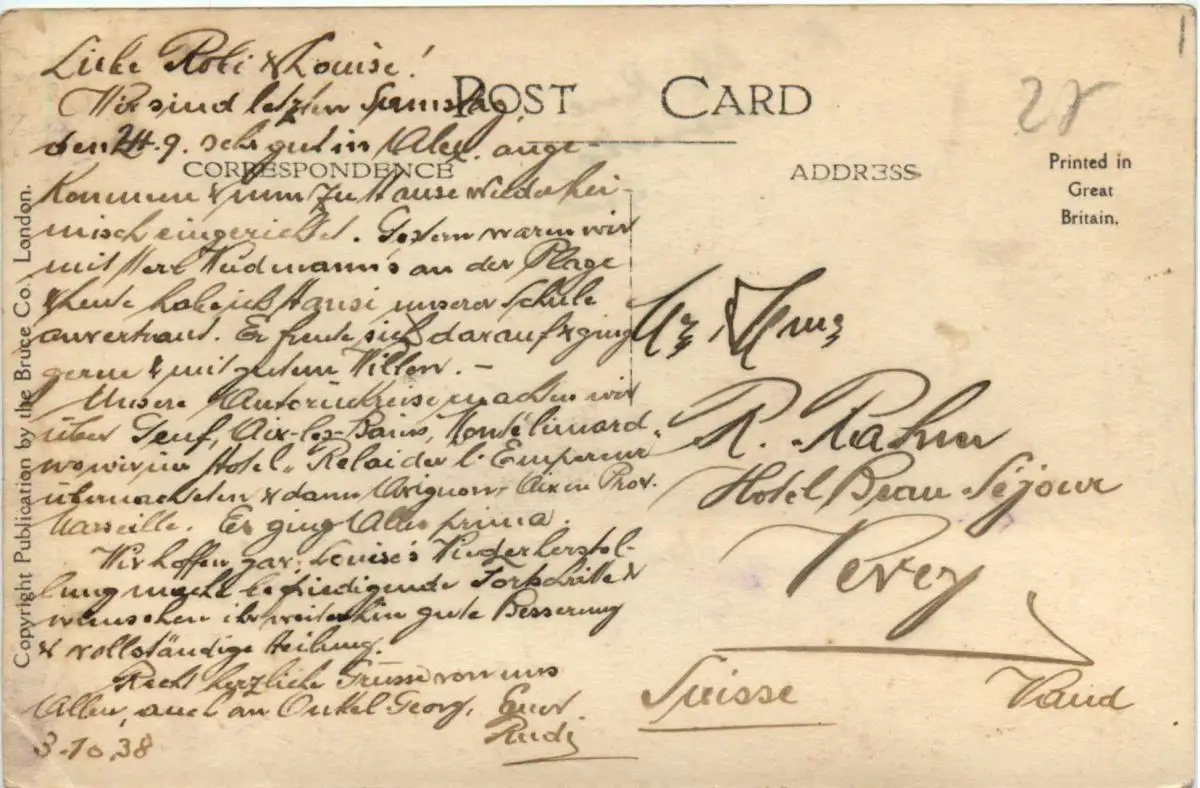 Liebe Robi & Louise!
Wir sind letzten Samstag,
den 24.9. sehr gut in Alex. ange-
kommen & nun zu Hause wieder hei-
misch eingerichtet. Gestern waren wir
mit Herr Wiedmann's an der Plage
& heute habe ich Hansi unserer Schule
anvertraut. Er freute sich darauf & ging
gerne & mit gutem Willen. –
Unsere Autorückreise machten wir
über Genf, Aix-les-Bains, Montélimard
wo wir im Hotel „Relai de l'Empereur"
übernachteten & dann Avignon, Aix en Prov.
Marseille. Es ging Alles prima.
Wir hoffen, Louise's Wiederherstel-
lung macht befriedigende Fortschritte &
wünschen ihr weiterhin gute Besserung
& vollständige Heilung.
Recht herzliche Grüsse von uns
Allen, auch an Onkel Georg, Euer
Rudi
3.10.38
POST CARD
CORRESPONDENCE
ADDRESS
28
Printed in
Great
Britain.
R. Rahm
Hotel Beau Séjour
Vevey
Suisse Vaud
Copyright Publication by the Bruce Co., London.